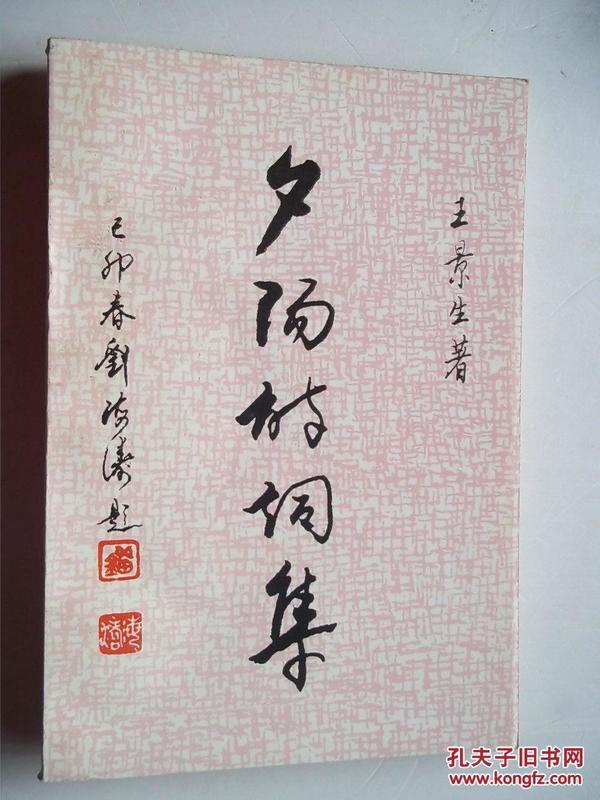 王景生著
夕阳诗词集
己卯春劉海濤題
海濤
孔夫子旧书网
www.kongfz.com